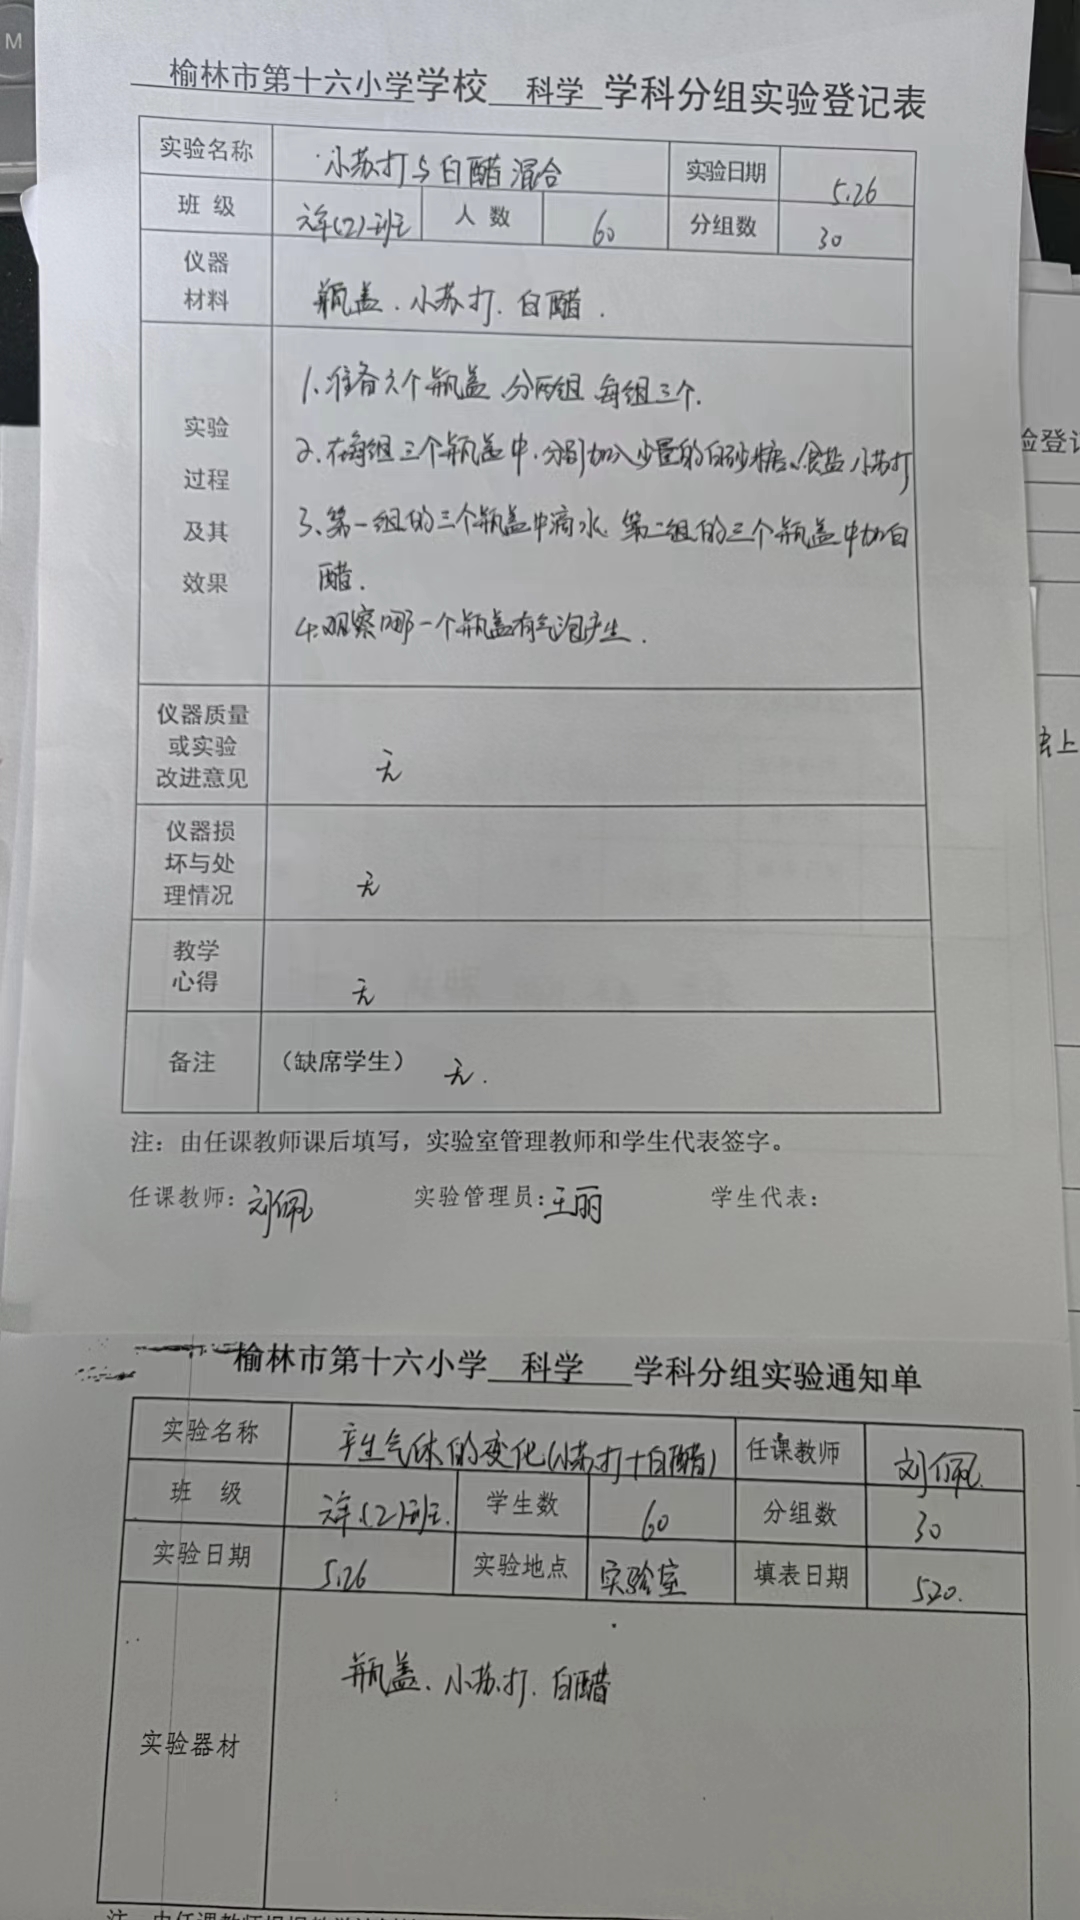 M
榆林市第十六小学学校 科学 学科分组实验登记表
实验名称 小苏打与白醋混合 实验日期 5.26
班级 六年(2)班 人数 60 分组数 30
仪器材料 瓶盖.小苏打.白醋.
实验过程及其效果
1.准备六个瓶盖.分两组.每组三个.
2.在每组三个瓶盖中.分别加入少量的白砂糖、食盐.小苏打
3.第一组的三个瓶盖中滴水.第二组的三个瓶盖中加白
醋.
4.观察哪一个瓶盖有气泡产生.
仪器质量或实验改进意见 无
仪器损坏与处理情况 无
教学心得 无
备注 （缺席学生） 无.
注：由任课教师课后填写，实验室管理教师和学生代表签字。
任课教师：刘佩 实验管理员：王丽 学生代表：
验登记
上
榆林市第十六小学 科学 学科分组实验通知单
实验名称 产生气体的变化(小苏打+白醋) 任课教师 刘佩
班级 六年(2)班. 学生数 60 分组数 30
实验日期 5.26 实验地点 实验室 填表日期 5.20.
实验器材 瓶盖.小苏打.白醋